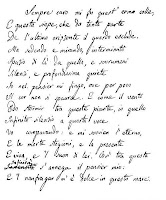 Sempre caro mi fu quest' ermo colle,
E questa siepe, che da tanta parte
De l'ultimo orizzonte il guardo esclude.
Ma sedendo e mirando, interminato
Spazio di là da quella, e sovrumani
Silenzi, e profondissima quiete
Io nel pensier mi fingo, ove per poco
Il cor non si spaura. E come il vento
Odo stormir tra queste piante, io quello
Infinito silenzio a questa voce
Vo comparando: e mi sovvien l'eterno,
E le morte stagioni, e la presente
E viva, e 'l suon di lei. Così tra questa
Immensità s'annega il pensier mio:
E 'l naufragar m'è dolce in questo mare.